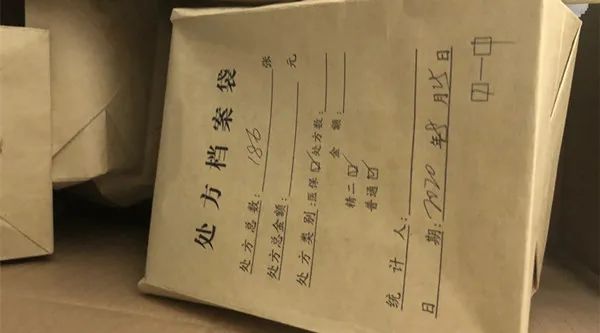 处方档案袋
处方总数: 186 张
处方总金额: 元
处方类别: 医保☑ 处方数:
精二☑ 金额:
普通☑
统计人:
日期: 2020年8月25日